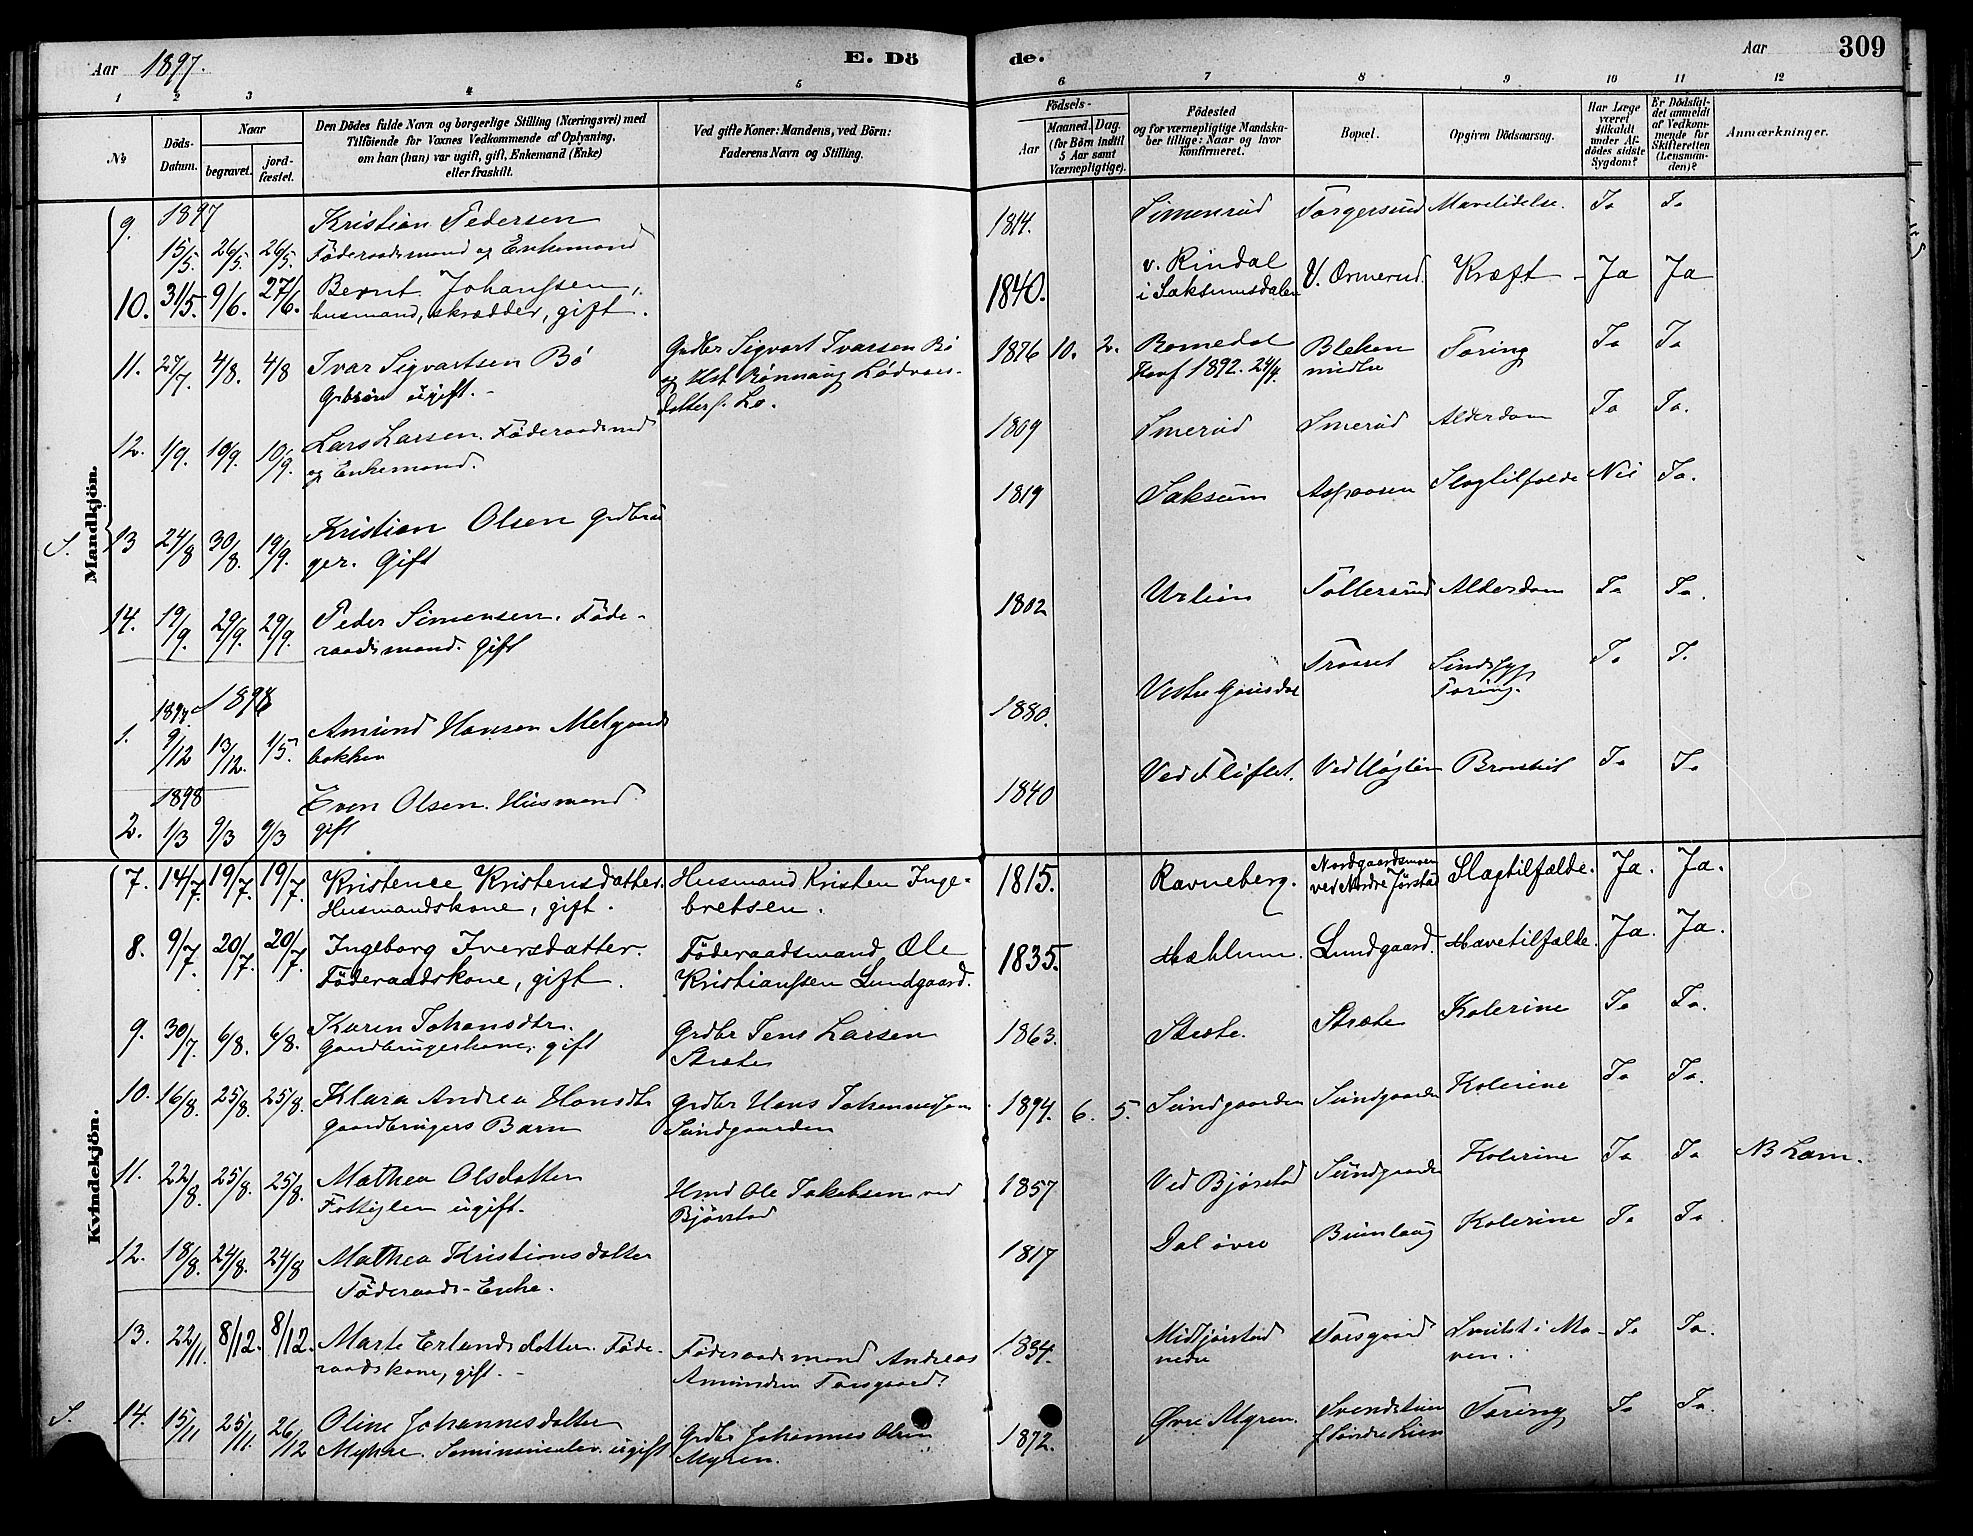 Aar 1897. E. Döde. Aar 309
1 2 3 4 5 6 7 8 9 10 11 12
№
Döds-Datum.
Naar
begravet.
jordfæstet.
Den Dödes fulde Navn og borgerlige Stilling (Næringsvei) med
Tilföiende for Voxnes Vedkommende af Oplysning,
om han (hun) var ugift, gift, Enkemand (Enke)
eller fraskilt.
Ved gifte Koner: Mandens, ved Börn:
Faderens Navn og Stilling.
Födsels-
Aar
Maaned. Dag.
(for Börn indtil
5 Aar samt
Værnepligtige).
Födested
og for værnepligtige Mandskaber tillige: Naar og hvor
konfirmeret.
Bopæl.
Opgiven Dödsaarsag.
Har Læge
været
tilkaldt
under Afdödes sidste
Sygdom?
Er Dödsfaldet anmeldt
af Vedkommende for
Skifteretten
(Lensmanden)?
Anmærkninger.
Mandkjön.
1897
9. 15/5. 26/5. 26/5. Kristian Pedersen 1814. Simenrud Torgersrud Mavelidelse. Ja Ja
Föderaadsmand og Enkemand
10. 31/5. 9/6. 27/6. Bernt Johanssen, 1840. v. Rindal V. Ormerud. Kræft Ja Ja
husmand, skrædder, gift. i Saksumsdalen
11. 27/7. 4/8. 4/8 Ivar Sigvartsen Bö Grdbr Sigvart Ivarsen Bö 1876 10. 2. Romedal Bleken Tæring Ja Ja
Grbrsn ugift. og Hst Rönnaug Lödvars- Konf 1892. 24/4. midtre
datter f. Lo.
12. 1/9. 10/9. 10/9. Lars Larsen. Föderaadsmd 1809 Smerud Smerud Alderdom Ja Ja.
og Enkemand.
S. 13 24/8 30/8. 19/9. Kristian Olsen Grdbru 1819 Saksum Aspaasen Slagtilfælde Nei Ja.
ger. Gift
14. 19/9. 29/9. 29/9. Peder Simensen. Föde- 1802 Urlien Tollersrud Alderdom Ja Ja.
raadsmand. Gift
1897 1898
1. 9/12 13/12. 1/5. Amund Hansen Melgaards 1880. Vestre Gausdal Sindssyg Ja J.
bakken Tæring.
1898
2. 1/3 9/3 9/3 Even Olsen. Husmand 1840 Ved Fliflet. Ja Ja
gift
Kvindekjön.
7. 14/7. 19/7. 19/7. Kristence Kristensdatter. Husmand Kristen Inge- 1815. Ravneberg. Nordgaardsmoen Slagtilfælde. Ja. Ja.
Husmandskone, gift. bretsen. ved Nordre Jörstad
8. 9/7. 20/7. 20/7. Ingeborg Iversdatter. Föderaadsmand Ole 1835. Mæhlum. Lundgaard. Mavetilfælde. Ja. Ja.
Föderaadskone, gift. Kristianssen Lundgaard.
9. 30/7. 6/8. 6/8. Karen Johansdtr. Grdbr Jens Larsen 1863. Stræte. Stræte Kolerine Ja Ja.
Gaardbrugerkone, gift Stræte
10. 16/8. 25/8. 25/8. Klara Andrea Hansdtr Grdbr Hans Johannessen 1894. 6. 5. Sundgaarden Sundgaarden Kolerine Ja Ja.
Gaardbrugers Barn Sundgaarden
11. 22/8. 25/8. 25/8. Mathea Olsdatter 1857 Ved Bjørstad Sundgaarden Kolerine Ja Ja NB Lam.
Fattiglem ugift. Hmd Ole Jakobsen ved
Bjørstad
12. 18/8. 24/8. 24/8 Mathea Kristiansdatter 1817 Dal øvre Brunlaug Kolerine Ja Ja
Föderaads-Enke.
13. 22/11. 8/12. 8/12. Marte Erlandsdatter. Föde- Föderaadsmand Andreas 1834. Midtjørstad Torsgaard i Ma- Ja Ja.
raadskone, gift. Amundsen Torsgaard. nedre ven.
S. 14. 15/11 25/11. 26/12 Oline Johannesdatter Grdbr Johannes Olsen 1872. Øvre Myren. Svendstuen Tæring Ja Ja.
Myhre. Seminarielev. ugift Myren. f Söndre Lien